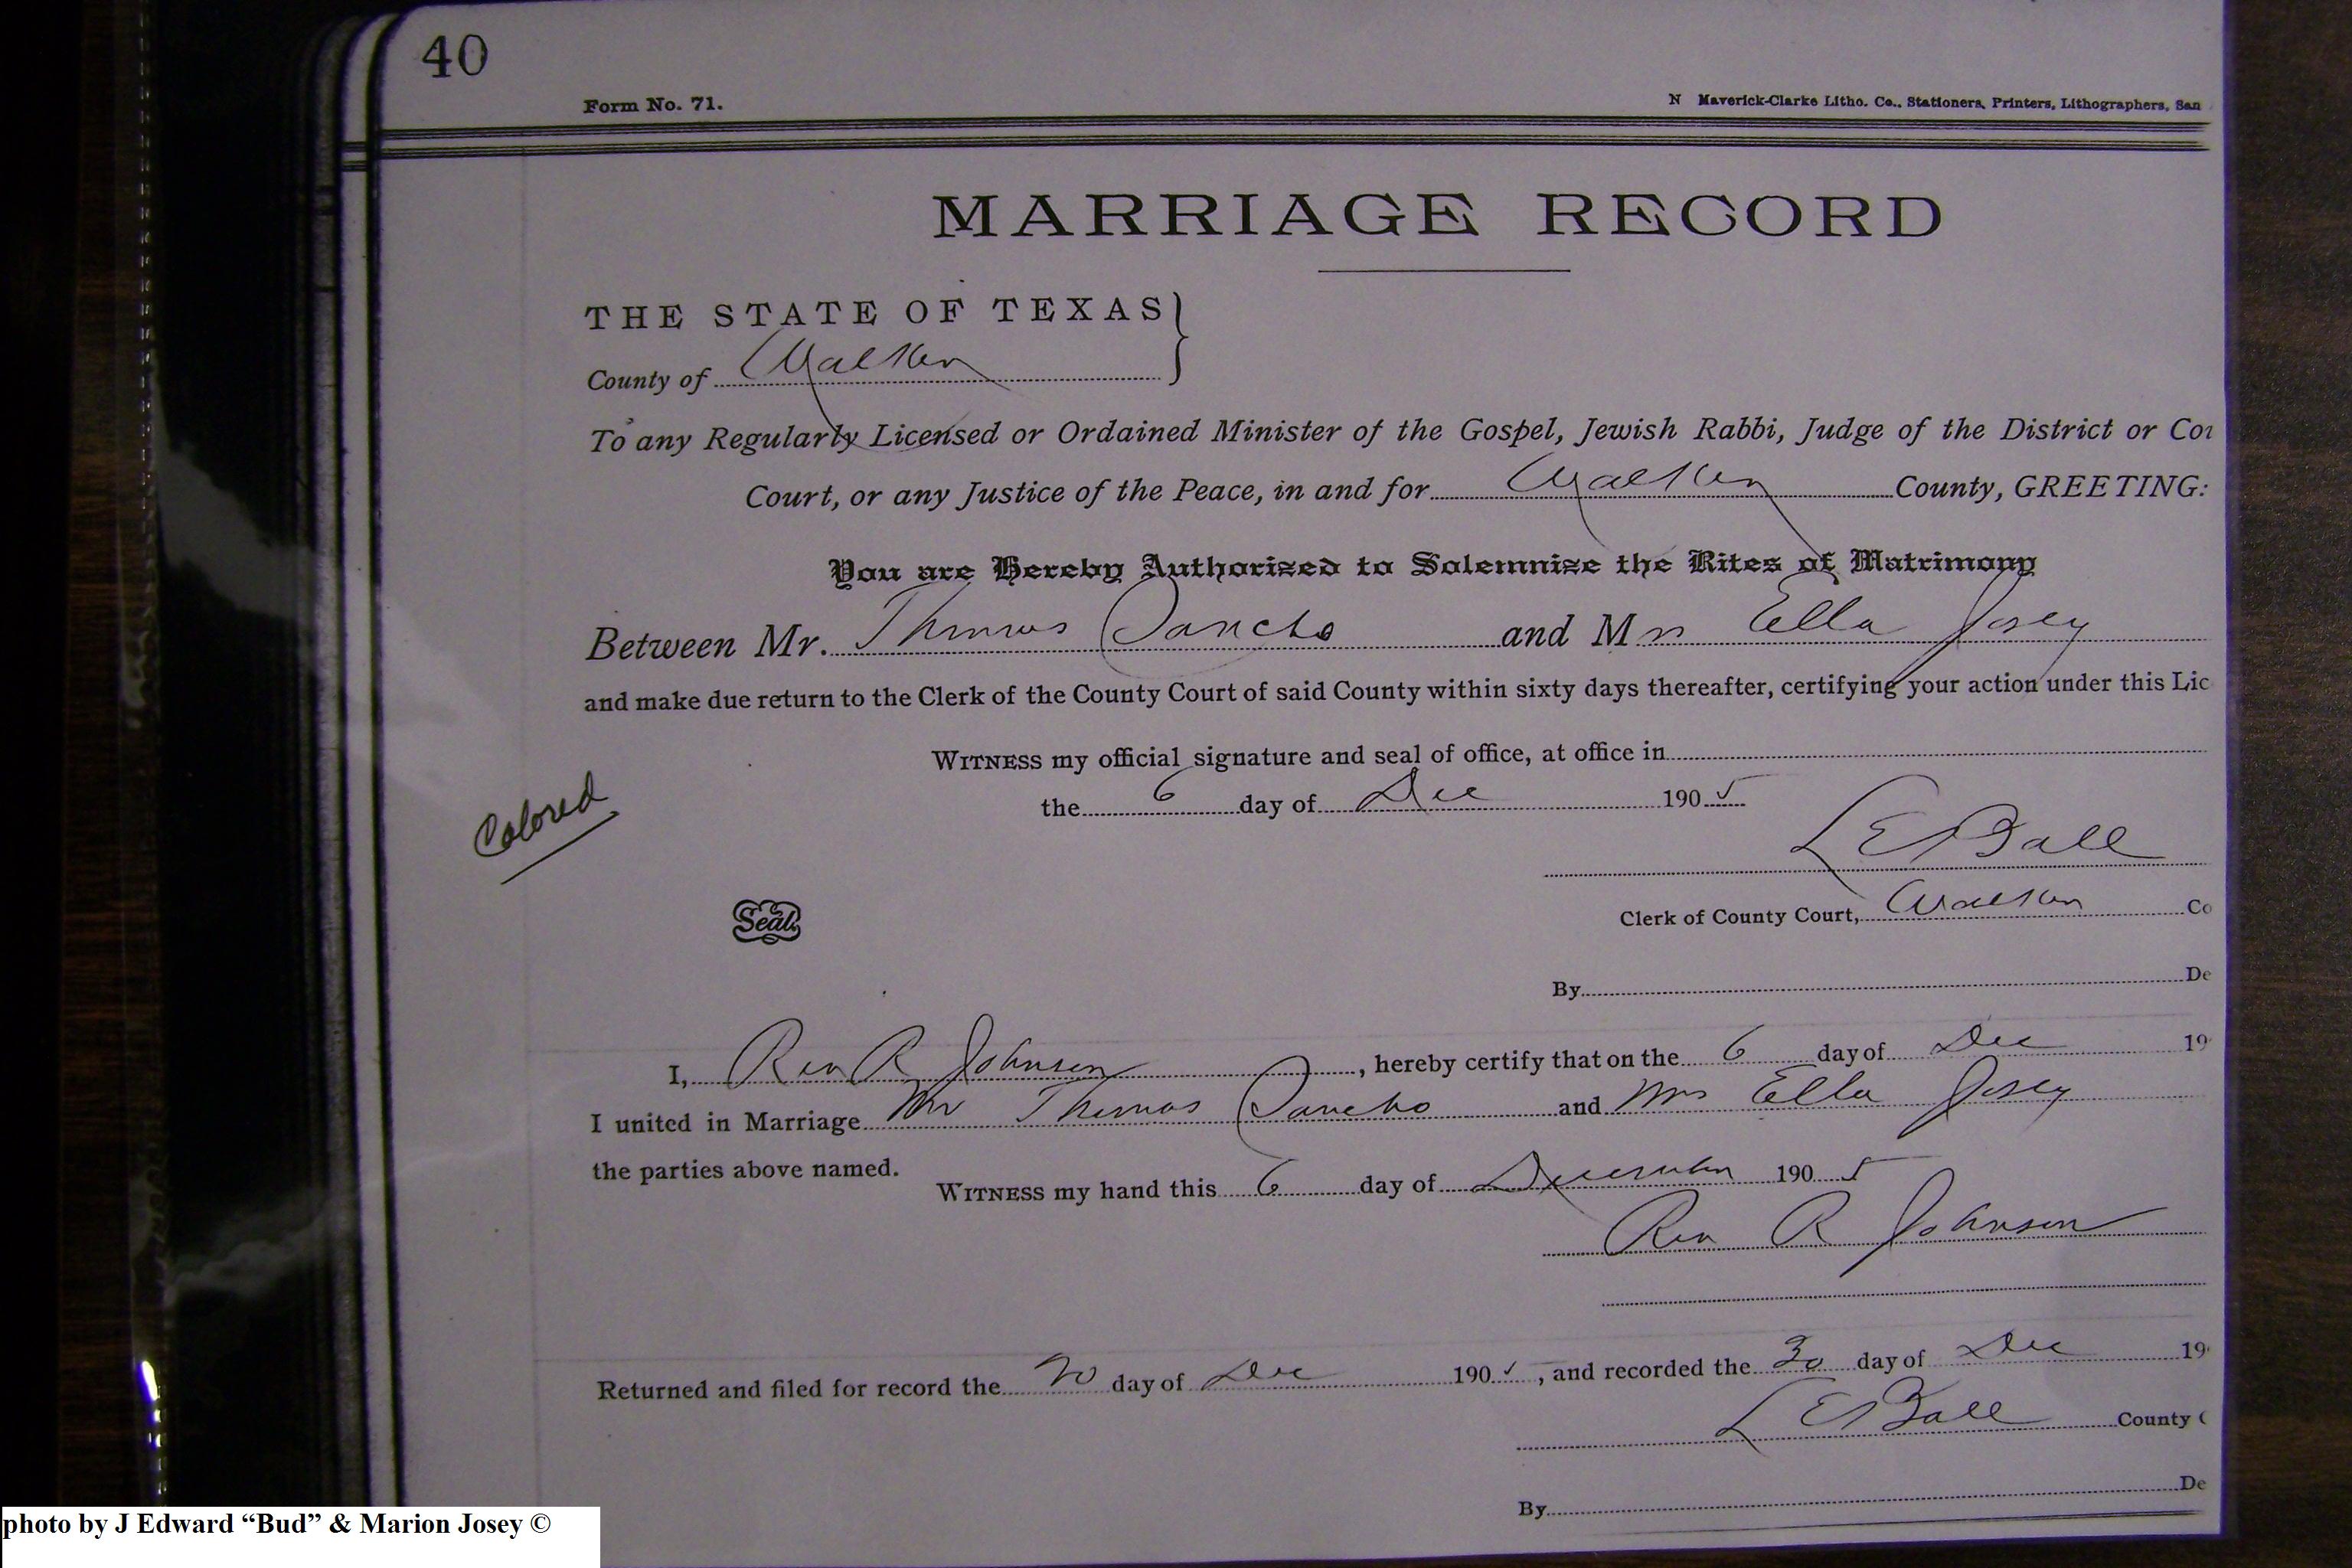 40
Form No. 71.
N Maverick-Clarke Litho. Co., Stationers, Printers, Lithographers, San
MARRIAGE RECORD
THE STATE OF TEXAS }
County of Walker
To any Regularly Licensed or Ordained Minister of the Gospel, Jewish Rabbi, Judge of the District or Cou
Court, or any Justice of the Peace, in and for Walker County, GREETING:
You are Hereby Authorized to Solemnize the Rites of Matrimony
Between Mr. Thomas Sancho and Mrs Ella Josey
and make due return to the Clerk of the County Court of said County within sixty days thereafter, certifying your action under this Lic
WITNESS my official signature and seal of office, at office in
the 6 day of Dec 1905
Colored
L E Ball
Seal.
Clerk of County Court, Walker Co
By De
I, Rev R Johnson, hereby certify that on the 6 day of Dec 19
I united in Marriage Mr Thomas Sancho and Mrs Ella Josey
the parties above named.
WITNESS my hand this 6 day of December 1905
Rev R Johnson
Returned and filed for record the day of Dec 1905, and recorded the 30 day of Dec 19
L E Ball County C
By De
photo by J Edward “Bud” & Marion Josey ©